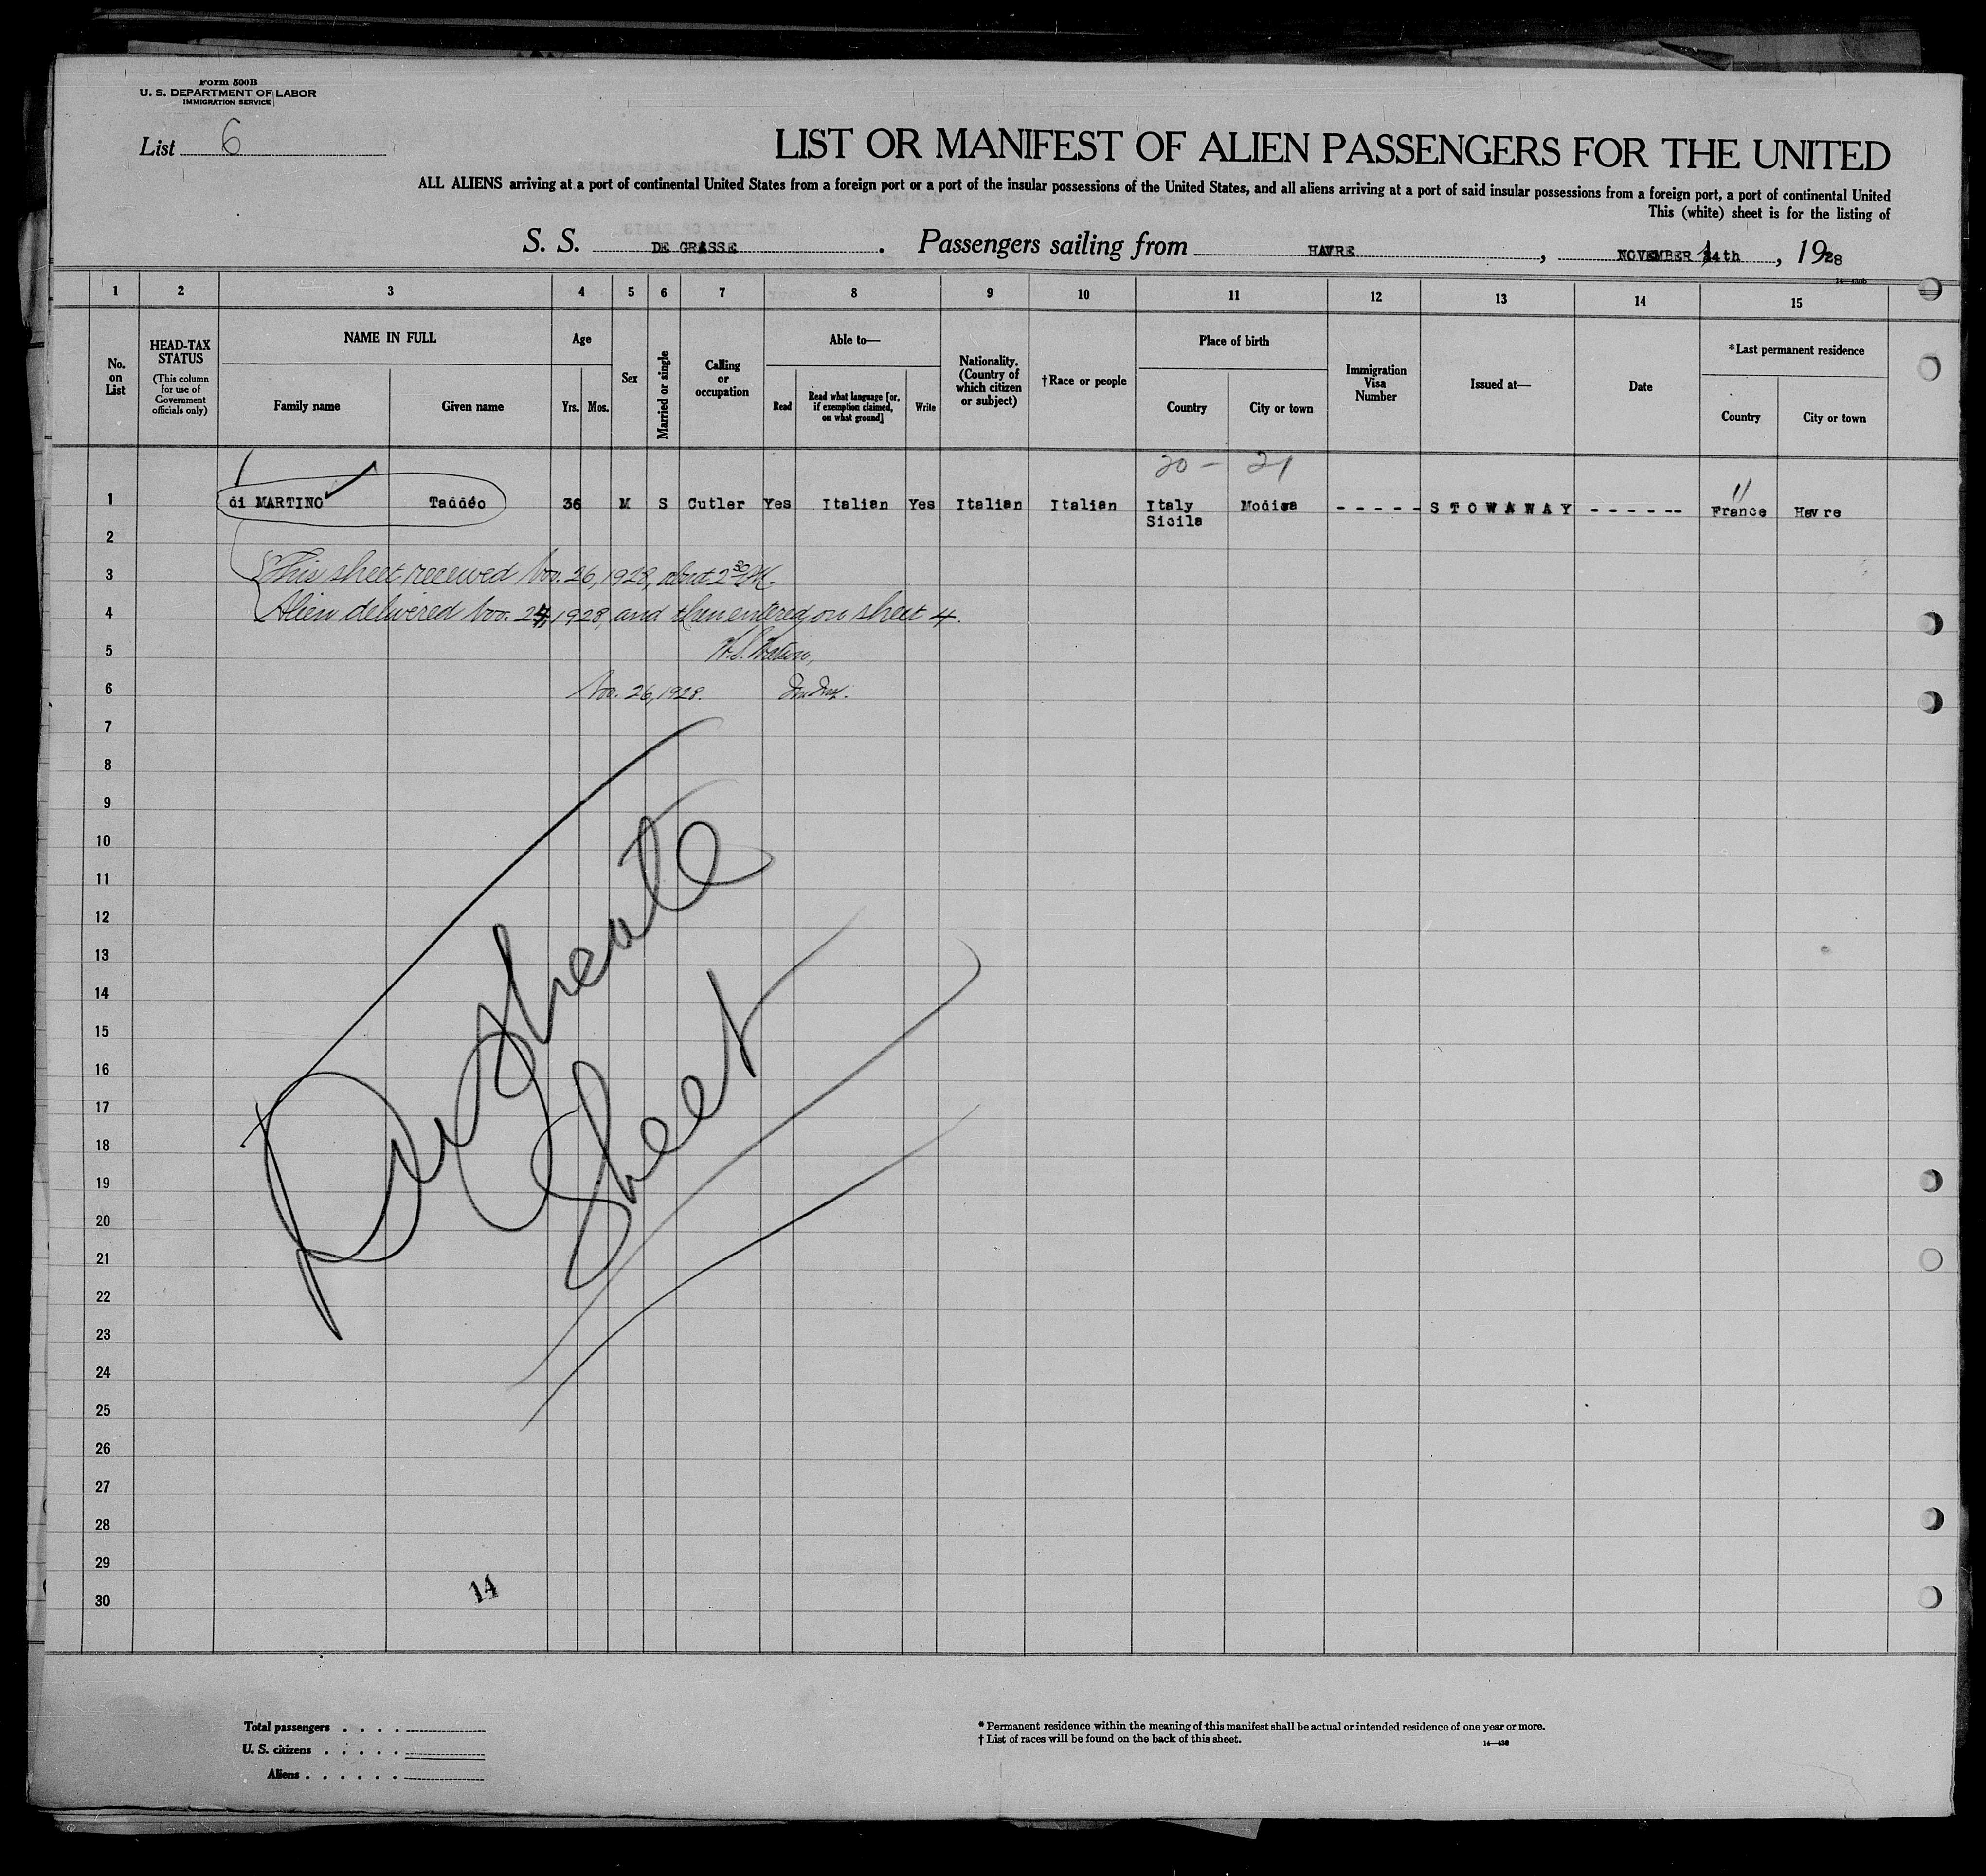 Form 500B
U. S. DEPARTMENT OF LABOR
IMMIGRATION SERVICE
List 6
LIST OR MANIFEST OF ALIEN PASSENGERS FOR THE UNITED
ALL ALIENS arriving at a port of continental United States from a foreign port or a port of the insular possessions of the United States, and all aliens arriving at a port of said insular possessions from a foreign port, a port of continental United
This (white) sheet is for the listing of
S. S. DE GRASSE . Passengers sailing from HAVRE , NOVEMBER 14th , 1928
1 2 3 4 5 6 7 8 9 10 11 12 13 14 15
No. on List
HEAD-TAX STATUS (This column for use of Government officials only)
NAME IN FULL Family name Given name
Age Yrs. Mos.
Sex
Married or single
Calling or occupation
Able to— Read Read what language [or, if exemption claimed, on what ground] Write
Nationality. (Country of which citizen or subject)
†Race or people
Place of birth Country City or town
Immigration Visa Number
Issued at—
Date
*Last permanent residence Country City or town
20 - 21
11
1 di MARTINO Taddéo 36 M S Cutler Yes Italian Yes Italian Italian Italy Modica - - - - - S T O W A W A Y - - - - - -- France Havre
Sicila
2
3 This sheet received Nov. 26, 1928, about 2 30 PM.
4 Alien delivered Nov. 24, 1928, and then entered on sheet 4.
5
6 Nov. 26, 1928.
7
8
9
10
11
12
13
14
15
16
17
18
19
20
21
22
23
24
25
26
27
28
29
30
Duplicate
Sheet
14
Total passengers . . . .
U. S. citizens . . . . .
Aliens . . . . . .
* Permanent residence within the meaning of this manifest shall be actual or intended residence of one year or more.
† List of races will be found on the back of this sheet.
14—430